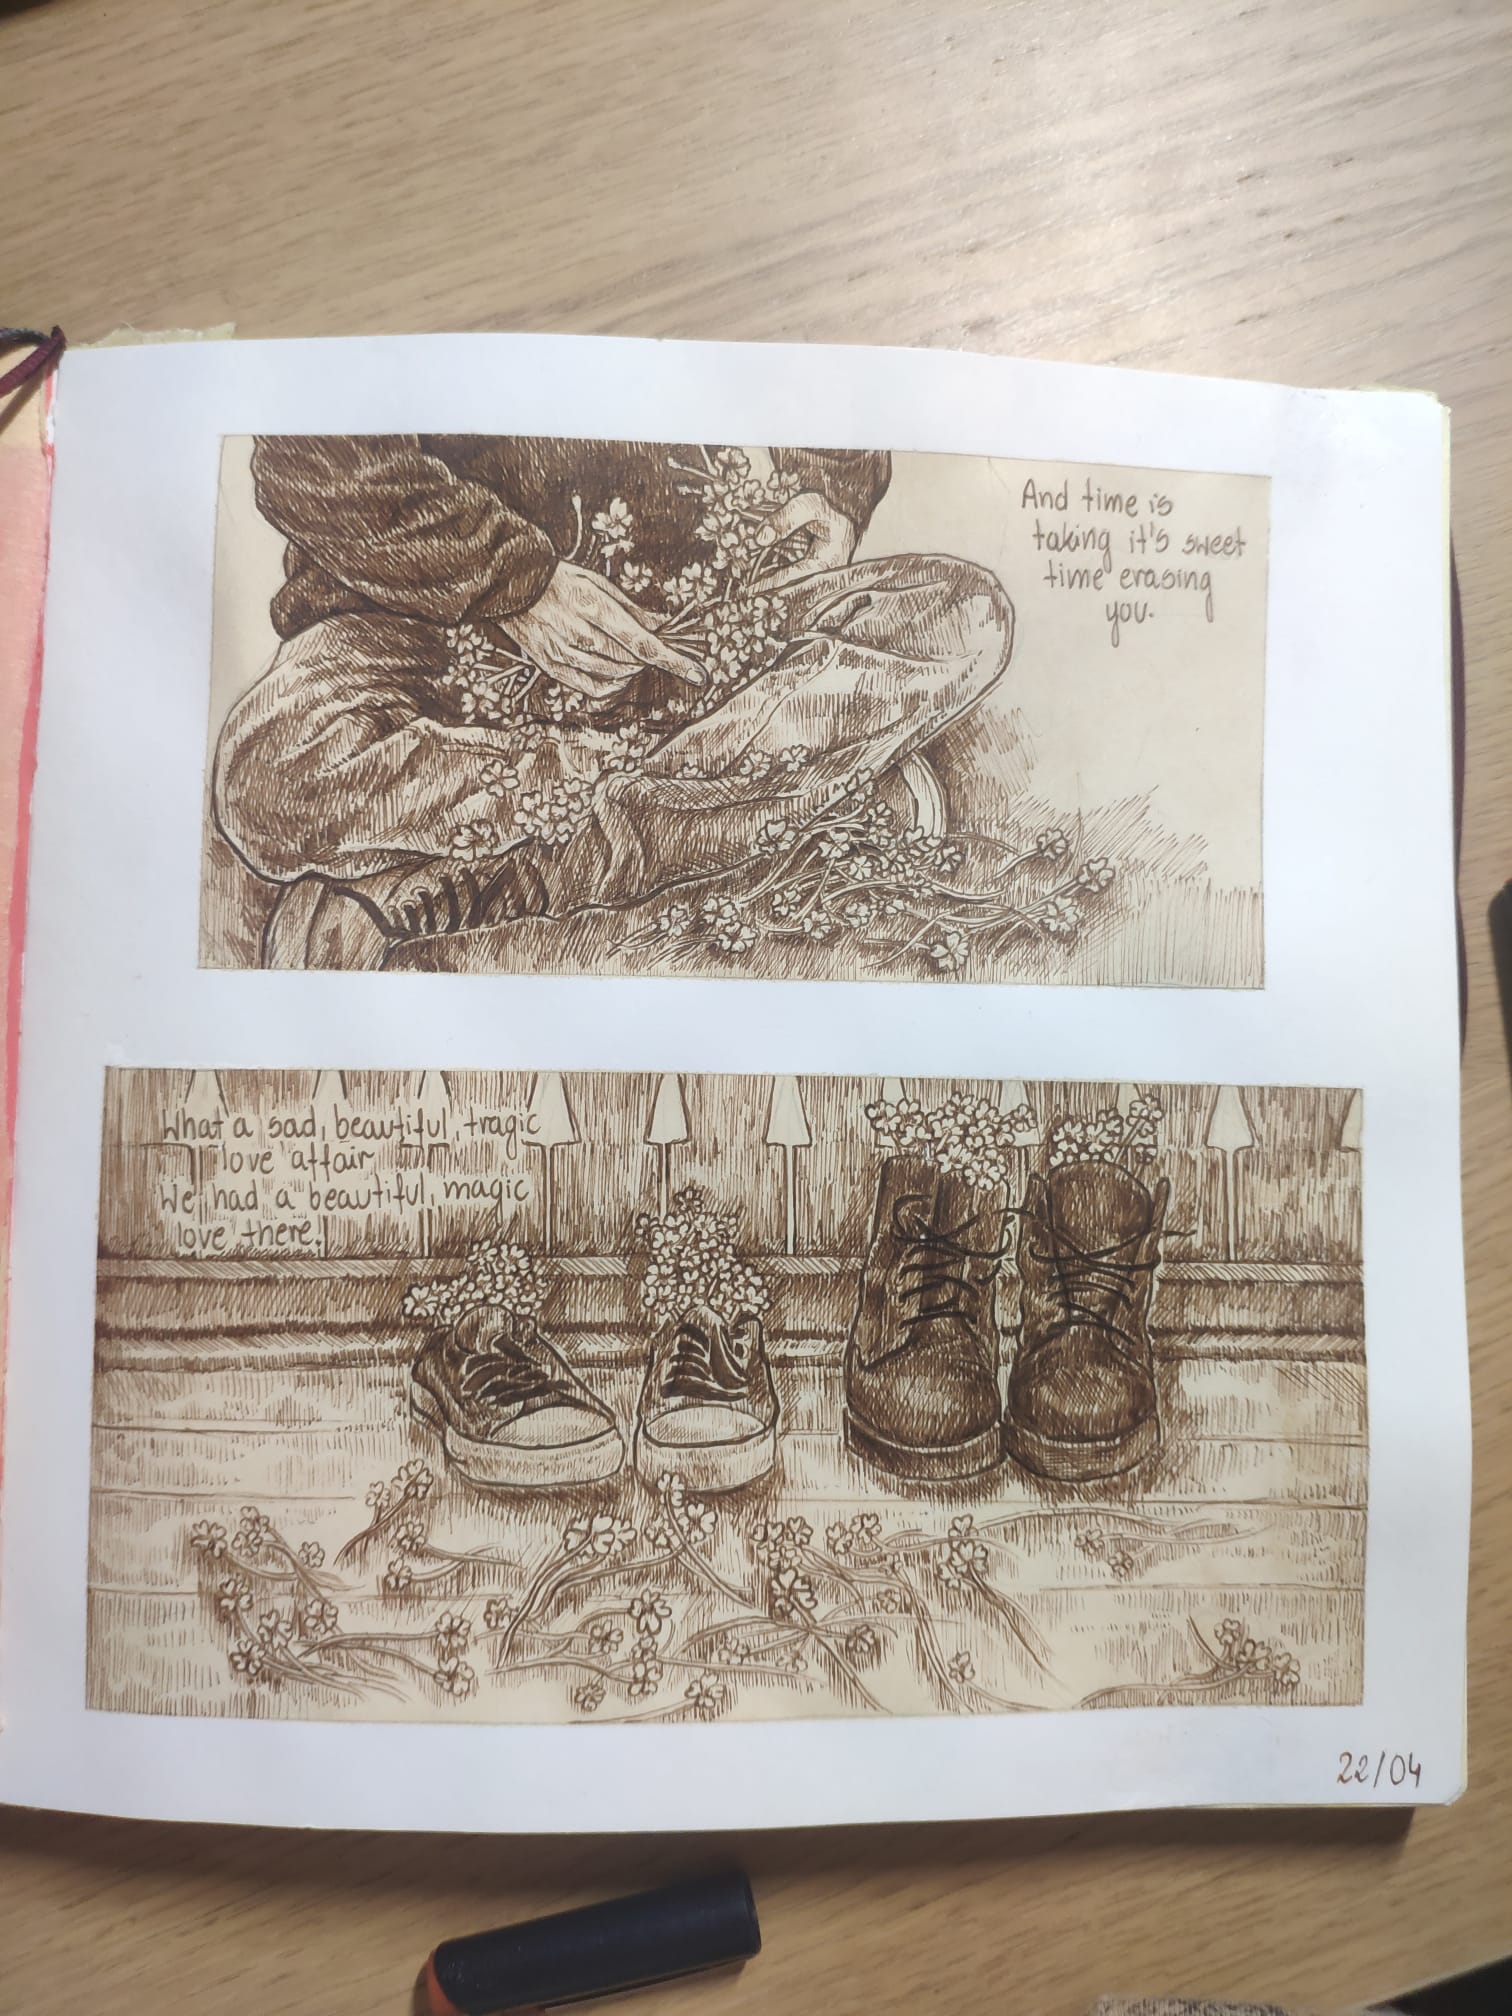 And time is
taking it's sweet
time erasing
you.
What a sad, beautiful, tragic
love affair
We had a beautiful, magic
love there.
22/04